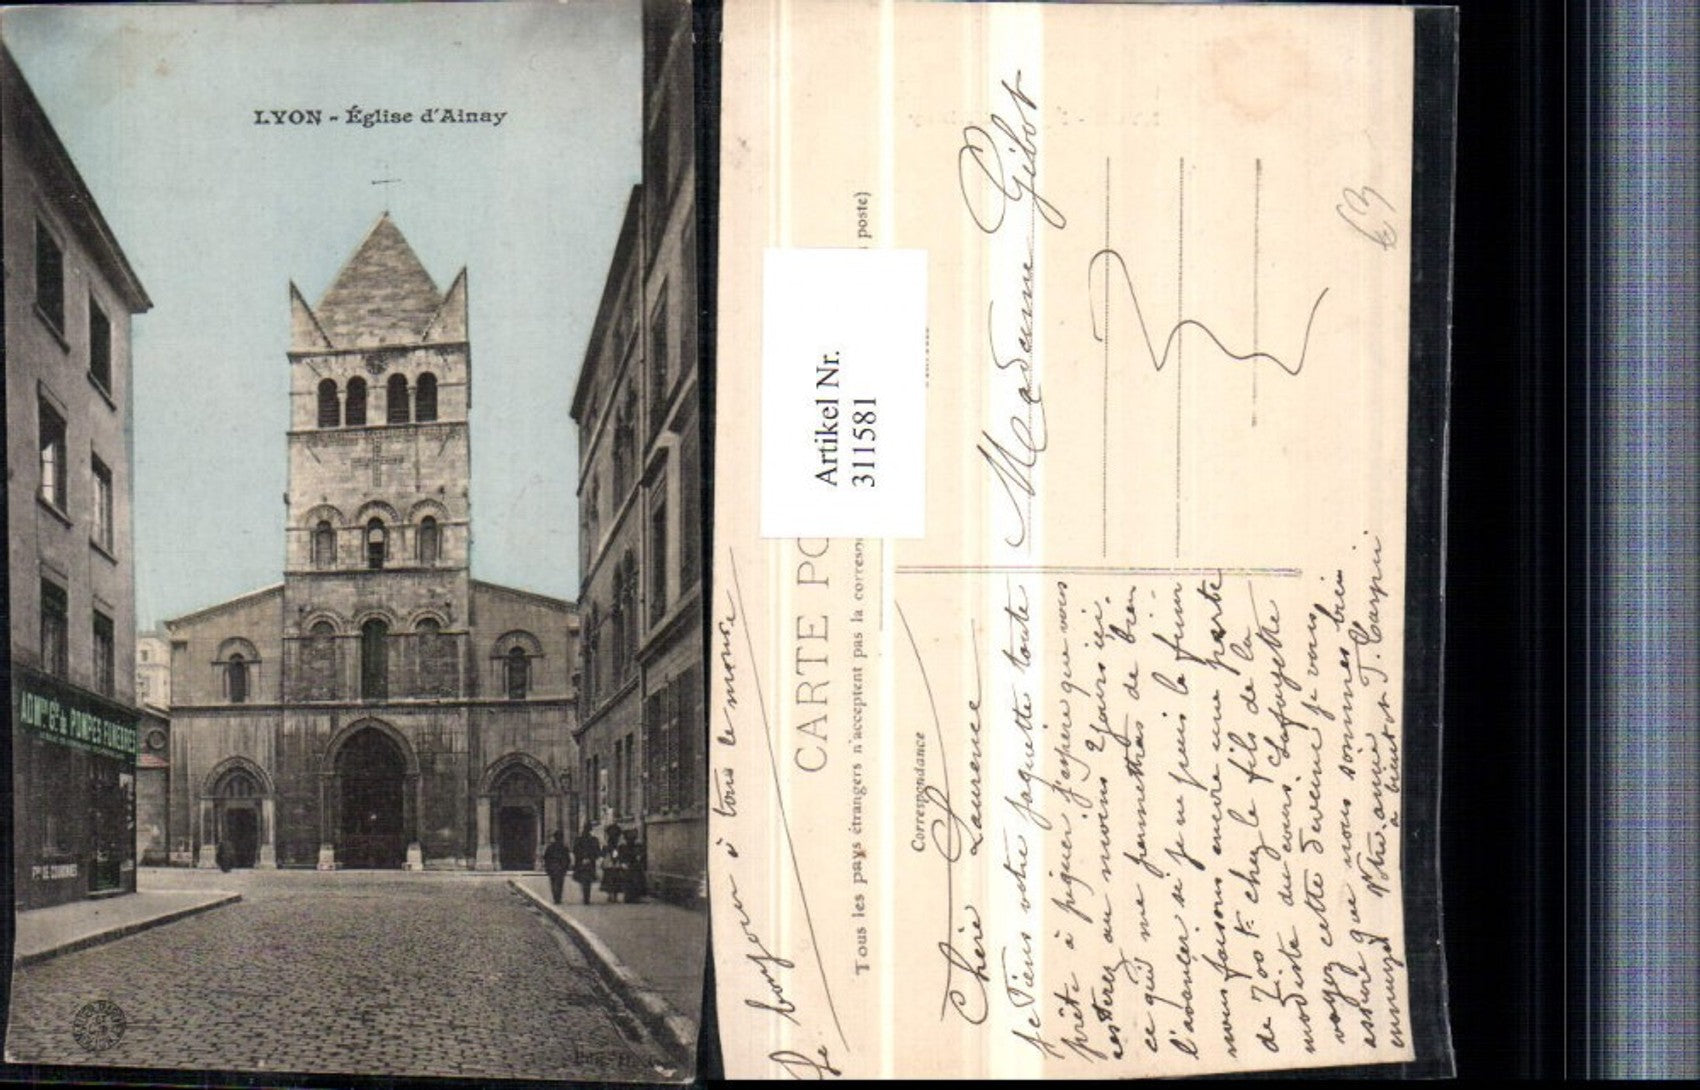 LYON - Église d'Ainay
POMPES FUNÈBRES
Fque DE COURONNES
Artikel Nr.
311581
CARTE PO
Tous les pays étrangers n'acceptent pas la corresp
poste)
Correspondance
Madame Gibot
Le bonjour à tous le monde
Chère Laurence
Je tiens votre jaquette toute
prête à piquer j'espère que vous
resterez au moins 2 jours ici.
ce qui me permettras de bien
l'avancer si je ne puis la finir
nous faisons encore une perte
de 700 F. chez le fils de la
modiste du cours Lafayette
voyez cette déveine je vous
assure que nous sommes bien
ennuyé Votre amie
à bientôt
63